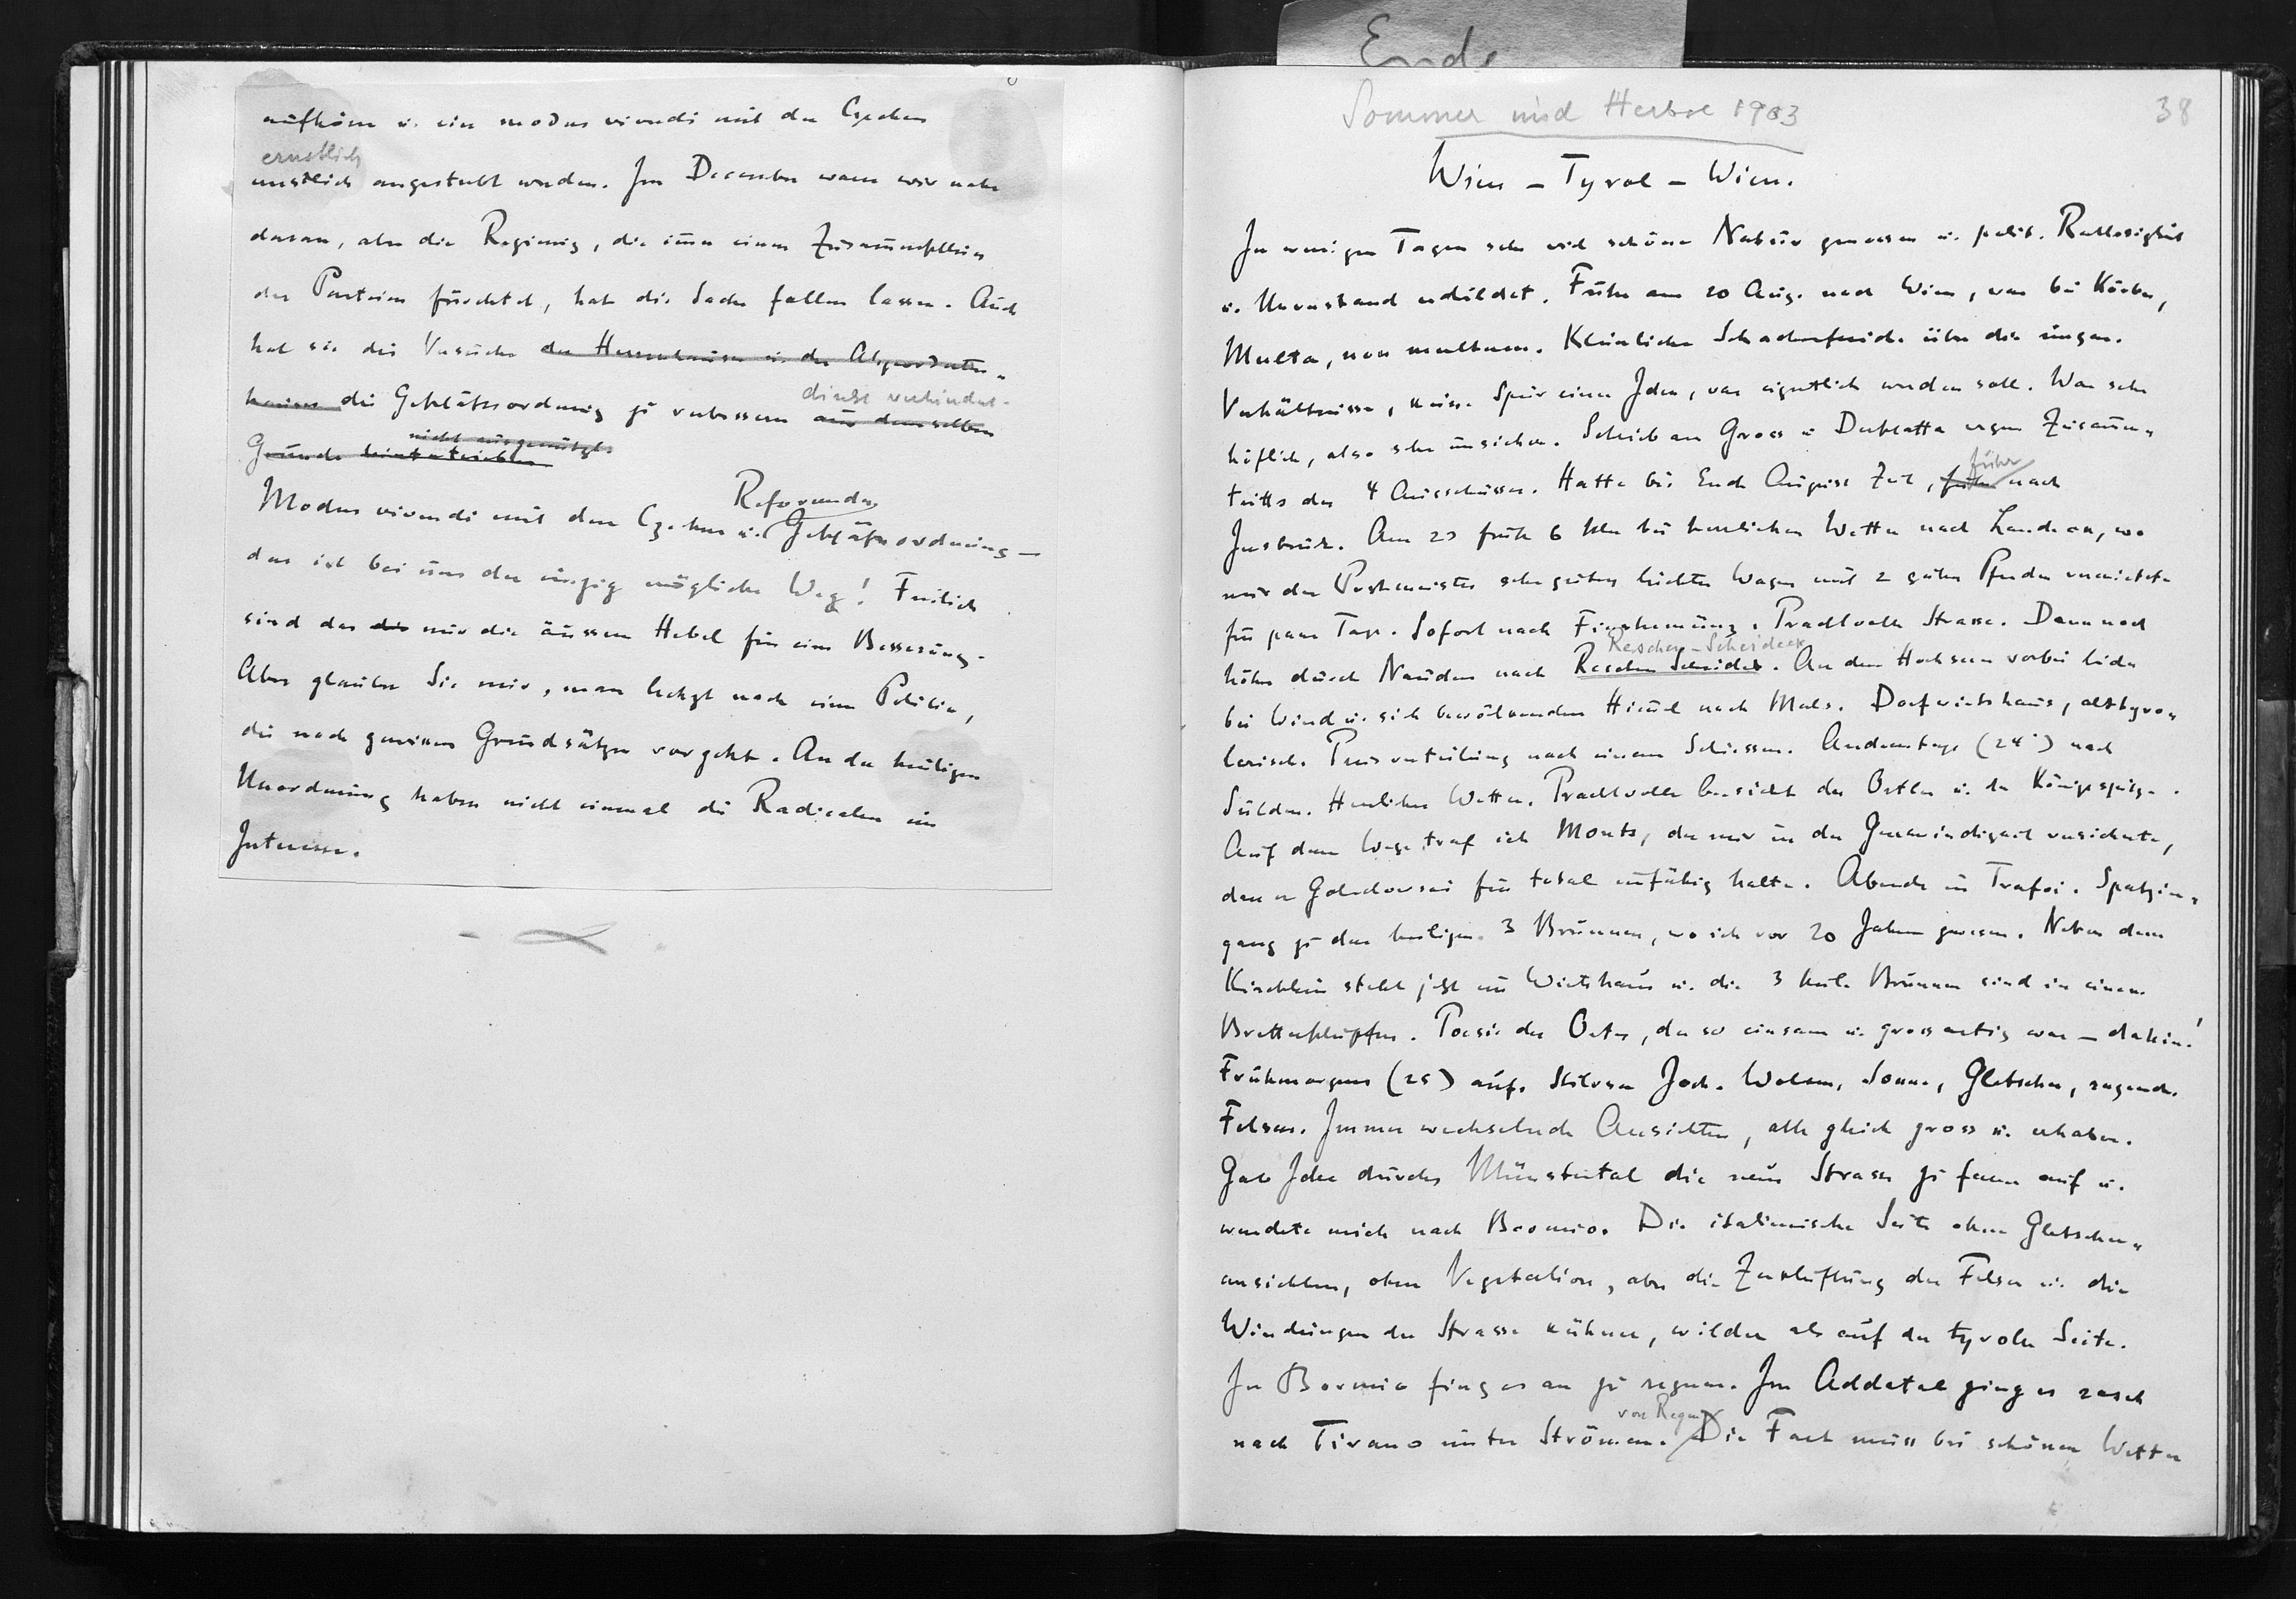 aufhöre u. ein modus vivendi mit den Czechen
ernstlich
ernstlich angestrebt werden. Im December waren wir nahe
daran, aber die Regierung, die immer einen Zusammenschluss
der Parteien fürchtet, hat die Sache fallen lassen. Auch
hat sie die Versuche des Herrenhauses u. des Abgeordneten-
hauses die Geschäftsordnung zu verbessern aus demselben
direkt verhindert.
Grunde hintertrieben
nicht ausgenützt.
Modus vivendi mit den Czechen u. Geschäftsordnung –
Reform der
das ist bei uns der einzig mögliche Weg! Freilich
sind das die nur die äussern Hebel für eine Besserung.
Aber glauben Sie mir, man lechzt nach einer Politik,
die nach gewissen Grundsätzen vorgeht. An der heutigen
Unordnung haben nicht einmal die Radicalen ein
Interesse.
Ende
Sommer und Herbst 1903
38
Wien – Tyrol – Wien.
In wenigen Tagen sehr viel schöne Natur genossen u. polit. Ratlosigkeit
u. Unverstand erduldet. Fuhr am 20 Aug. nach Wien, war bei Körber,
Multa, non multum. Kleinliche Schadenfreude über die ungar.
Verhältnisse, keine Spur einer Idee, was eigentlich werden soll. War sehr
höflich, also sehr unsicher. Schrieb an Gross u Derschatta wegen Zusammen-
tritts der 4 Ausschüsse. Hatte bis Ende August Zeit, fuhr nach
fuhr
Insbruck. Am 23 früh 6 Uhr bei herrlichem Wetter nach Landeck, wo
mir der Postmeister sehr guten leichten Wagen mit 2 guten Pferden vermietete
für paar Tage. Sofort nach Finstermünz. Prachtvolle Strasse. Dann noch
höher durch Nauders nach Reschen Scheideck. An den Hochseen vorbei leider
Reschen-Scheideck
bei Wind u. sich bewölkendem Himmel nach Mals. Dorfwirtshaus, alttyro-
lerisch. Preisverteilung nach einem Schiessen. Andern Tags (24) nach
Sulden. Herrliches Wetter. Prachtvolle Ansicht des Ortler u. der Königsspitze.
Auf dem Wege traf ich Monts, der mir in der Geschwindigkeit versicherte,
dass er Goluchowski für total unfähig halte. Abends in Trafoi. Spazier-
gang zu den heiligen 3 Brunnen, wo ich vor 20 Jahren gewesen. Neben dem
Kirchlein steht jetzt ein Wirtshaus u. die 3 heil. Brunnen sind in einem
Bretterschupfen. Poesie des Ortes, der so einsam u. grossartig war – dahin!
Frühmorgens (25) aufs Stilvser Joch. Wolken, Sonne, Gletscher, ragende
Felsen. Immer wechselnde Aussichten, alle gleich gross u. erhaben.
Gab Idee durchs Münstertal die neue Strasse zu fahren auf u.
wendete mich nach Bormio. Die italienische Seite ohne Gletscher-
ansichten, ohne Vegetation, aber die Zerklüftung der Felsen u. die
Windungen der Strasse kühner, wilder als auf der tyroler Seite.
In Bormio fing es an zu regnen. Im Addatal ging es rasch
nach Tirano unter Strömen. Die Fart muss bei schönem Wetter
von Regen